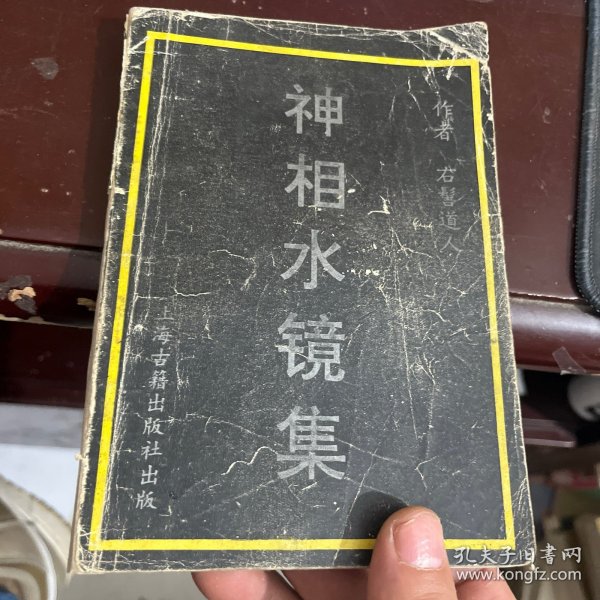 作者 右髻道人
神相水镜集
上海古籍出版社出版
孔夫子旧书网
www.kongfz.com